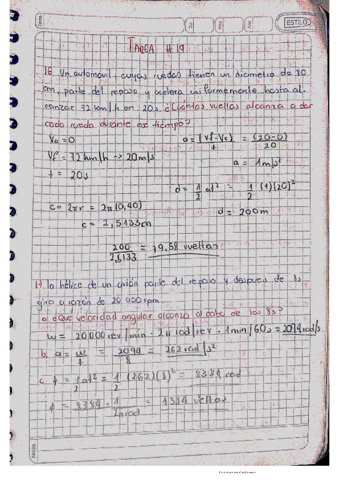 ESTILO
TAREA # 19
16. Un automovil, cuyas ruedas tienen un diametro de 80
cm, parte del reposo y acelera uniformemente hasta al
canzar 72 km/h en 20s. ¿Cuántas vueltas alcanza a dar
cada rueda durante ese tiempo?
Vo = 0 a = (Vf - Vo) / t = (20-0) / 20
Vf = 72 km/h -> 20 m/s a = 1 m/s²
t = 20s
d = 1/2 at² = 1/2 (1)(20)²
c = 2πr = 2π(0,40) d = 200m
c = 2,5133m
200 / 2,5133 = 79,58 vueltas
17. La hélice de un avión parte del reposo y despues de 8s
gira a razón de 20 000 rpm.
a. ¿Qué velocidad angular alcanza al cabo de los 8s?
w = 20.000 rev/min · 2π rad/rev · 1min/60s = 2094 rad/s.
b. a = w/t = 2094/8 = 262 rad/s²
c. ϕ = 1/2 at² = 1/2 (262)(8)² = 8384 rad
ϕ = 8384 · 1/2π rad = 1334 vueltas